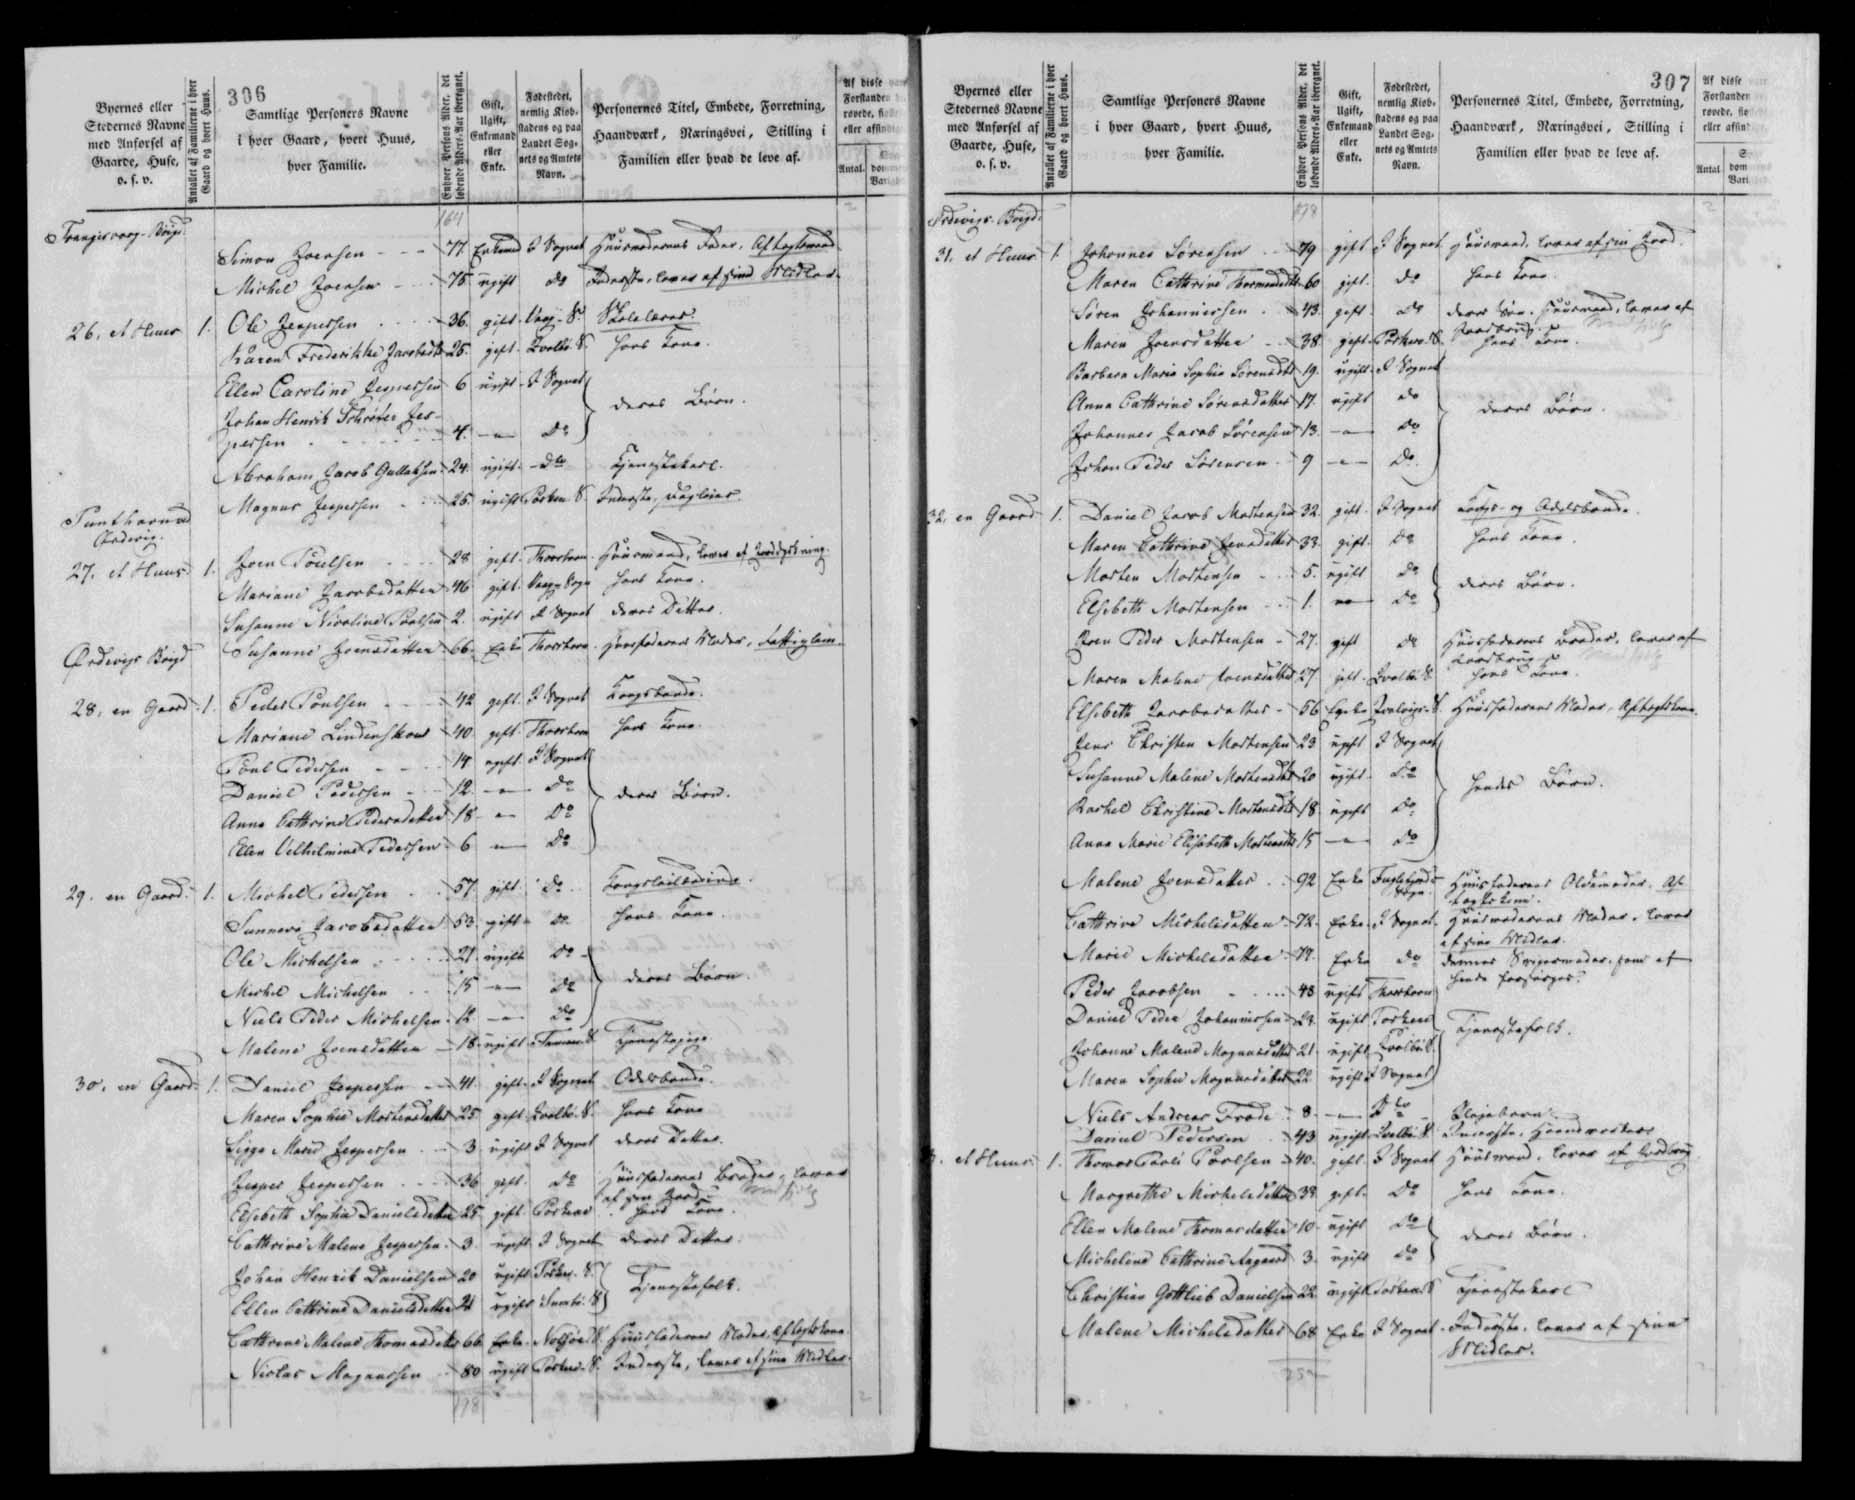 306
Byernes eller Stedernes Navne med Anførsel af Gaarde, Huse, o. s. v.
Antallet af Familierne i hver Gaard og hvert Huus.
Samtlige Personers Navne i hver Gaard, hvert Huus, hver Familie.
Enhver Persons Alder, det løbende Alders-Aar iberegnet.
Gift, Ugift, Enkemand eller Enke.
Fødestedet, nemlig Kiøbstadens og paa Landet Sognets og Amtets Navn.
Personernes Titel, Embede, Forretning, Haandværk, Næringsvei, Stilling i Familien eller hvad de leve af.
Af disse
Antal.
164
Trangisvaag Bøigd
Simon Joensen 77 Enkemd I Sognet Huusmoderens Fader, Aftægtsmand
Michel Joensen 75 ugift do Inderste, lever af sine Midler.
26, et Huus 1. Ole Jespersen 36. gift Vaag S. Skolelærer.
Karen Frederikke Jacobsdtr 25. gift Qvalbø S. hans Kone.
Ellen Caroline Jespersen 6 ugift I Sognet
Johan Henrik Schrøter Jes-
persen 4. — Do deres Børn.
Abraham Jacob Gullaksen 24. ugift Dto Tjenestekarl.
Magnus Jespersen 25. ugift Porkere S. Inderste, Dagleier.
27, et Huus 1. Joen Poulsen 28 gift Huusmand, lever af Jorddyrkning.
Mariane Jacobsdatter 46 gift Vaag Sogn hans Kone.
Susanne Nicoline Poulsen 2. ugift I Sognet deres Datter.
Ørdevigs Bøigd Susanne Joensdatter 66. Enke Huusfaderens Moder, Fattiglem.
28, en Gaard 1. Peder Poulsen 42 gift I Sognet Kongsbonde.
Mariane Lindenskou 40. gift hans Kone.
Poul Pedersen 14 ugift I Sognet
Daniel Pedersen 12 — Do deres Børn.
Anna Cathrine Pedersdatter 18 — Do
Ellen Vilhelmine Pedersen 6 — Do
29. en Gaard 1. Michel Pedersen 57. gift do
Sunneva Jacobsdatter 53. gift do hans Kone.
Ole Michelsen 21. ugift Do
Michel Michelsen 15 — Do deres Børn.
Niels Peder Michelsen 12 — Do
Malene Joensdatter 18. ugift Tjenestepige.
30, en Gaard 1. Daniel Jespersen 41. gift I Sognet Odelsbonde.
Maren Sophie Mortensdatter 25. gift Qvalbø S. hans Kone
Sigga Marie Jespersen 3 ugift I Sognet deres Datter.
Jesper Jespersen 36 gift. do Huusfaderens Broder, lever
af sin Jord.
Elsebeth Sophia Danielsdatter 25. gift Porkere hans Kone.
Cathrine Malene Jespersen 3. ugift I Sognet deres Datter.
Johan Henrik Danielsen 20 ugift Porkere S.
Ellen Cathrine Danielsdatter 21 ugift Sumbø S. Tjenestefolk.
Cathrine Malene Thomasdatter 66. Enke Nolsøe S. Huusfaderens Moder, Aftægtskone.
Niclas Magnussen 80 ugift Porkere S. Inderste, lever af sine Midler.
198
307
Byernes eller Stedernes Navne med Anførsel af Gaarde, Huse, o. s. v.
Antallet af Familierne i hver Gaard og hvert Huus.
Samtlige Personers Navne i hver Gaard, hvert Huus, hver Familie.
Enhver Persons Alder, det løbende Alders-Aar iberegnet.
Gift, Ugift, Enkemand eller Enke.
Fødestedet, nemlig Kiøbstadens og paa Landet Sognets og Amtets Navn.
Personernes Titel, Embede, Forretning, Haandværk, Næringsvei, Stilling i Familien eller hvad de leve af.
Af disse
Antal
198
Ørdevigs Bøigd
31. et Huus 1. Johannes Sørensen 79 gift I Sognet Huusmand, lever af sin Jord.
Maren Cathrine Thomasdatter 60 gift do hans Kone.
Søren Johannessen 43. gift do deres Søn, Huusmand, lever af
Jordbrug.
Maren Joensdatter 38. gift Porkere S. hans Kone.
Barbara Maria Sophia Sørensdtr 19. ugift I Sognet
Anna Cathrine Sørensdatter 17. ugift do deres Børn.
Johannes Jacob Sørensen 13. — Do
Johan Peder Sørensen 9 — Do.
32, en Gaard 1. Daniel Jacob Mortensen 32. gift I Sognet Kongs- og Odelsbonde.
Maren Cathrine Jensdatter 33. gift. do hans Kone.
Morten Mortensen 5. ugift Do
Elsebeth Mortensen 1. — Do deres Børn.
Joen Peder Mortensen 27. gift do Huusfaderens Broder, lever af
Jordbrug.
Maren Malene Joensdatter 27. gift Qvalbø S. hans Kone.
Elsebeth Jacobsdatter 56 Enke S. Huusfaderens Moder, Aftægtskone.
Jens Christen Mortensen 23 ugift I Sognet
Susanne Malene Mortensdtr 20 ugift Do
Rachel Christine Mortensdtr 18. ugift Do hendes Børn.
Anna Marie Elisabeth Mortensdtr 15 — Do
Malene Joensdatter 92 Enke Fuglefjords Sogn. Huusfaderens Oldemoder, Af-
tægtskone.
Cathrine Michelsdatter 72. Enke I Sognet Huusmoderens Moder, lever
af sine Midler.
Marie Michelsdatter Enke do dennes Svigermoder, som af
hende forsørges.
Peder Jacobsen 43 ugift
Daniel Peder Johannessen ugift Porkere
Johanne Malene Magnusdatter 21. ugift Qvalbø S. Tjenestefolk.
Maren Sophie Magnusdatter 22 ugift I Sognet
Niels Andreas Trode 8 — Dto Pleiebarn
Daniel Pedersen 43 ugift Qvalbø S. Inderste, Haandværker
et Huus 1. Thomas Poulsen 40. gift I Sognet Huusmand, lever af Jordbrug
Margrethe Michelsdatter 39. gift Do hans Kone.
Ellen Malene Thomasdatter 10 ugift Do
Micheline Cathrine Aagaard 3. ugift Do deres Børn.
Christian Gottlieb Danielsen 22 ugift Porkere S Tjenestekarl
Malene Michelsdatter 68 Enke I Sognet Inderste, lever af sine
Midler.